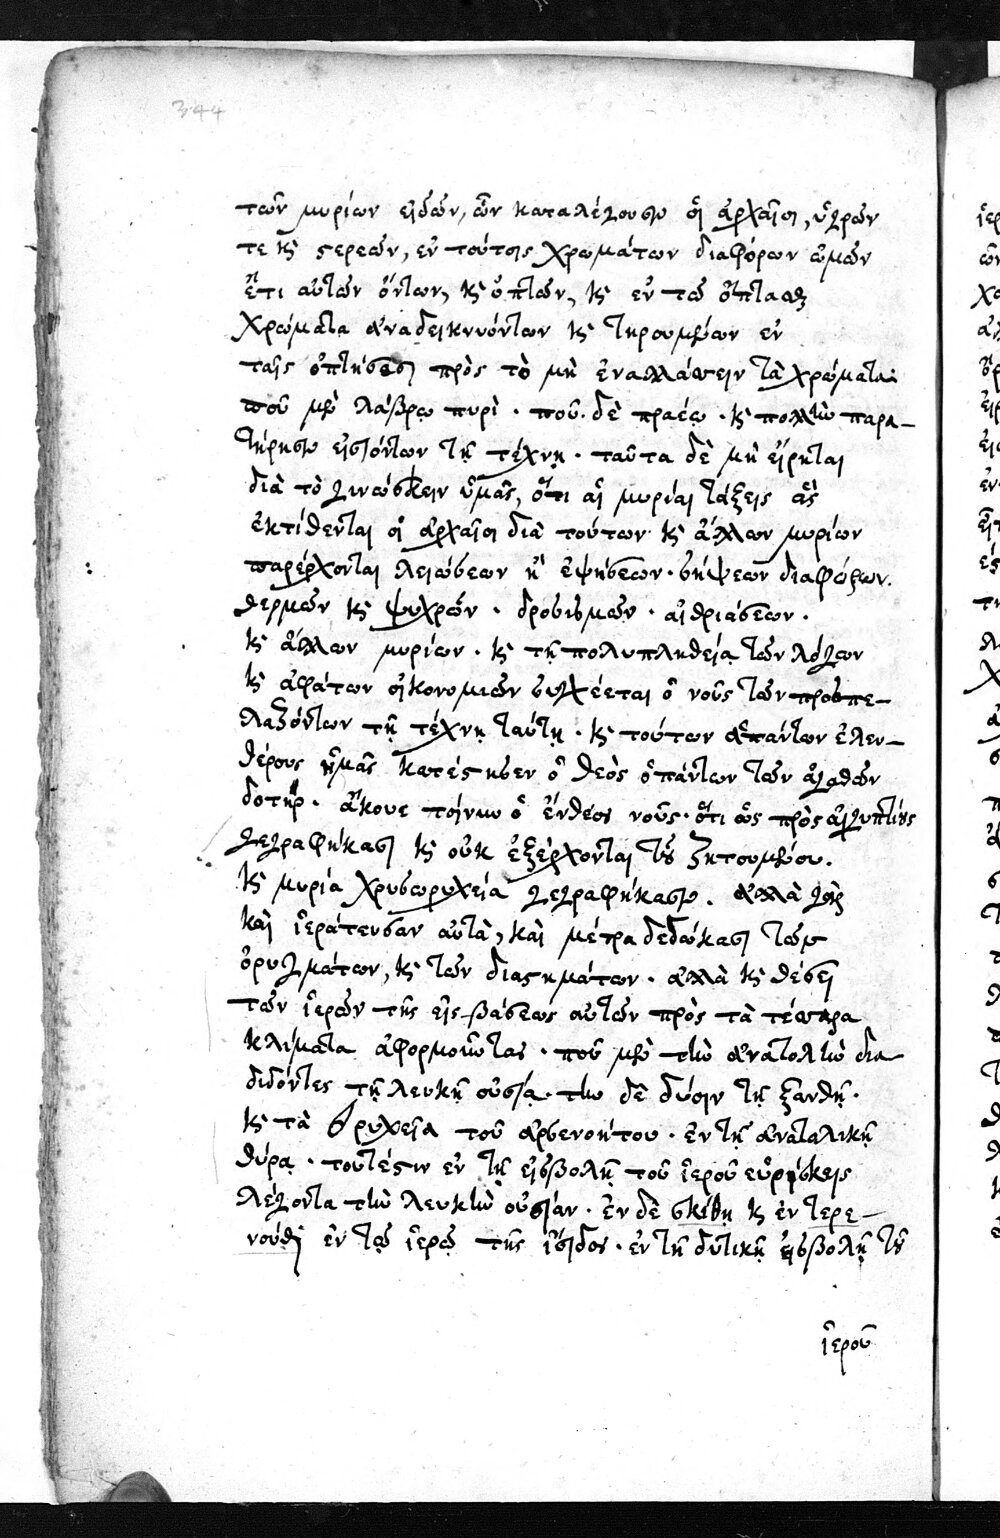 344
τῶν μυρίων εἰδῶν, ὧν καταλέγουσιν οἱ ἀρχαῖοι, ὑγρῶν
τε κ̀ στερεῶν, ἐν τούτοις χρωμάτων διαφόρων ὠμῶν
ἔτι αὐτῶν ὄντων, κ̀ ὀπτῶν, κ̀ ἐν τῷ ὀπτᾶσθαι
χρώματα ἀναδεικνυόντων κ̀ τηρουμένων ἐν
ταῖς ὀπτήσεσι πρὸς τὸ μὴ ἐναλλάττειν τὰ χρώματα
ποῦ μὲν λάβρῳ πυρὶ · ποῦ δὲ πραέῳ · κ̀ πολλὴν παρα-
τήρησιν εἰσιόντων τῇ τέχνῃ · ταῦτα δὲ μὴ εἴρηται
διὰ τὸ γινώσκειν ὑμᾶς, ὅτι αἱ μυρίαι τάξεις ἃς
ἐκτίθενται οἱ ἀρχαῖοι διὰ τούτων κ̀ ἄλλων μυρίων
παρέρχονται λειώσεων κ̀ ἑψήσεων · σήψεων διαφόρων.
θερμῶν κ̀ ψυχρῶν · δροσισμῶν · αἰθριάσεων ·
κ̀ ἄλλων μυρίων · κ̀ τῇ πολυπληθείᾳ τῶν λόγων
κ̀ ἀφάτων οἰκονομιῶν συγχέεται ὁ νοῦς τῶν προσπε-
λαζόντων τῇ τέχνῃ ταύτῃ · κ̀ τούτων ἁπάντων ἐλευ-
θέρους ἡμᾶς κατέστησεν ὁ θεὸς ὁ πάντων τῶν ἀγαθῶν
δοτήρ · ἄκουε τοίνυν ὁ ἔνθεος νοῦς · ὅτι ὡς πρὸς αἰγυπτίους
γεγραφήκασι κ̀ οὐκ ἐξέρχονται τοῦ ζητουμένου.
κ̀ μυρία χρυσωρυχεῖα γεγραφήκασιν. ἀλλὰ γὰρ
καὶ ἱεράτευσαν αὐτὰ, καὶ μέτρα δεδώκασι τῶν
ὀρυγμάτων, κ̀ τῶν διαστημάτων · ἀλλὰ κ̀ θέσει
τῶν ἱερῶν τῆς εἰσβάσεως αὐτῶν πρὸς τὰ τέσσαρα
κλίματα ἀφορμοῦντας · ποῦ μὲν τὴν ἀνατολὴν δια-
διδόντες τῇ λευκῇ οὐσίᾳ · τὴν δὲ δύσιν τῇ ξανθῇ ·
κ̀ τὰ ὀρυχεῖα τοῦ ἀρσενοήτου · ἐν τῇ ἀναταλικῇ
θύρᾳ · τουτέστιν ἐν τῇ εἰσβολῇ τοῦ ἱεροῦ εὑρήσκεις
λέγοντα τὴν λευκὴν οὐσίαν · ἐν δὲ σκίθῃ κ̀ ἐν τερε-
νούθι ἐν τῷ ἱερῷ τῆς ἴσιδος · ἐν τῇ δυτικῇ εἰσβολῇ τοῦ
ἱεροῦ